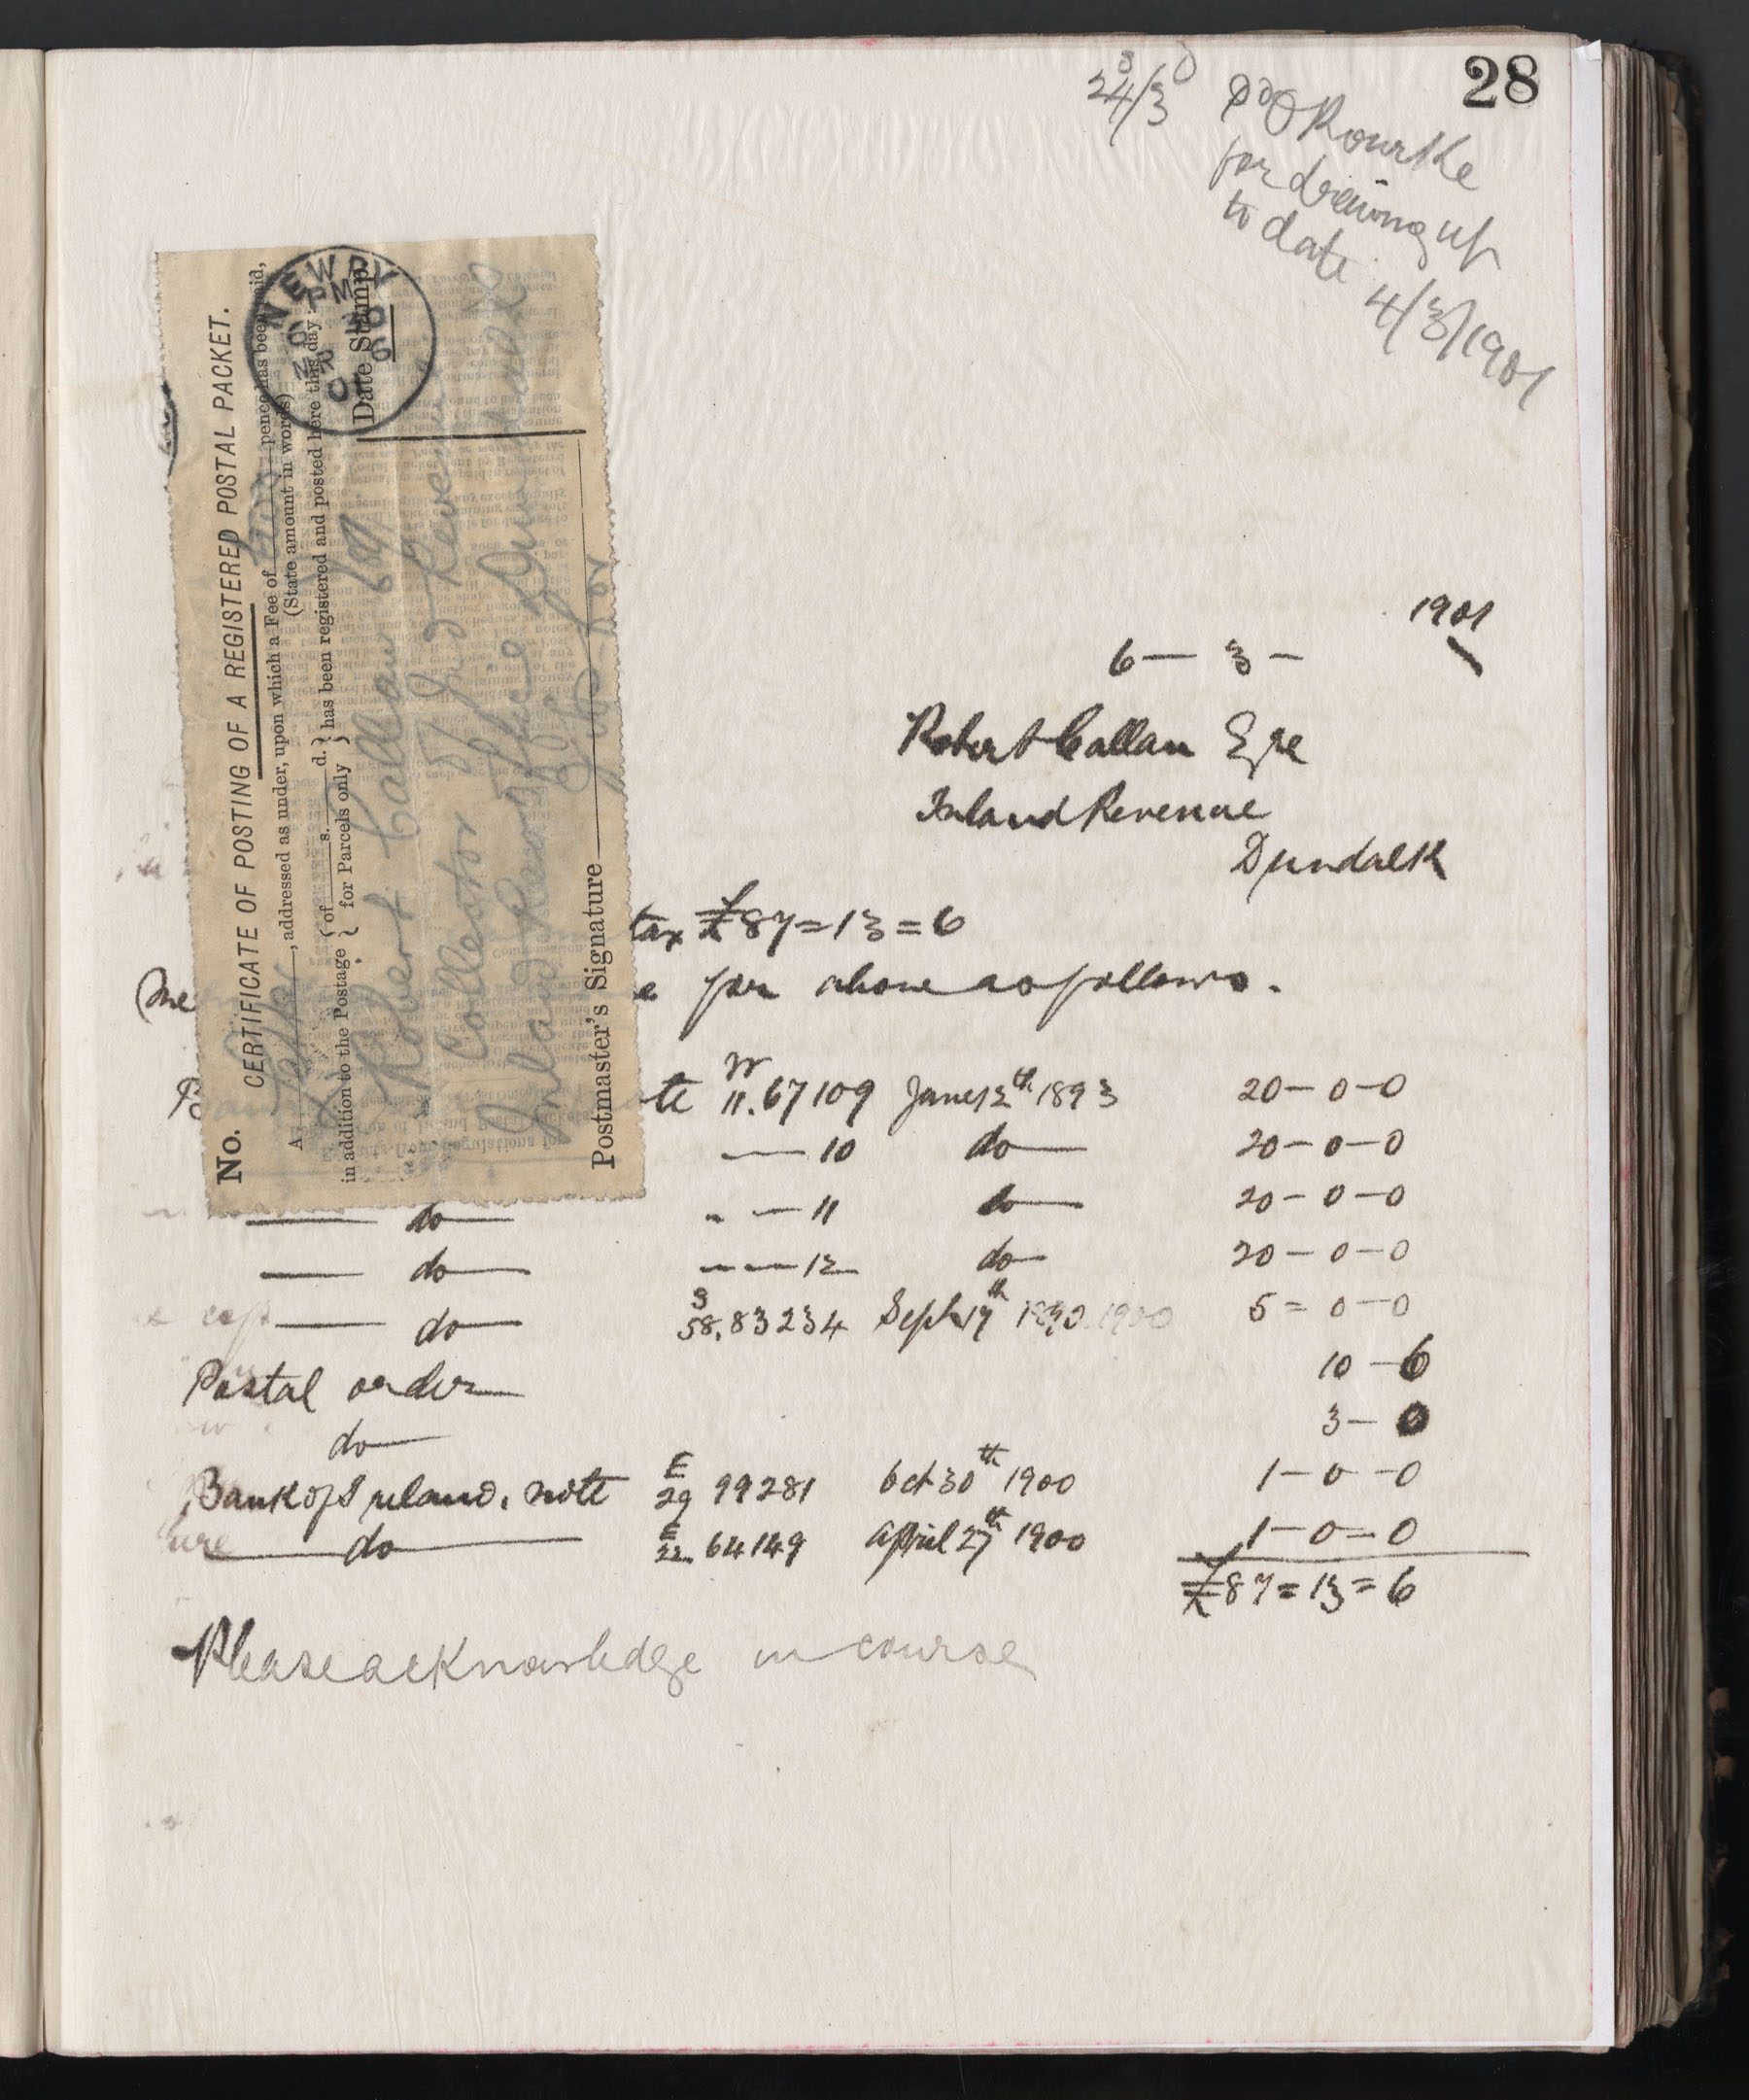 28
24/3
Pd O Rourke
for drawing up
to date
4/3/1901
No. CERTIFICATE OF POSTING OF A REGISTERED POSTAL PACKET.
A , addressed as under, upon which a Fee of pence has been paid,
(State amount in words)
in addition to the Postage { of s. d. } has been registered and posted here this day:
{ for Parcels only }
Robert Callan Esq
Collector of Ind Revenue
Inland Revenue Office Dundalk
Postmaster's Signature
Date Stamp.
NEWRY
PM
MR
01
1901
6 — 3 —
Robert Callan Eqre
Inland Revenue
Dundalk
tax £87=13=6
for above as follows.
te 11.67109 Jany 12th 1893 20-0-0
— 10 do 20-0-0
do — 11 do 20-0-0
do — 12 do 20-0-0
do S 58.83234 Sept 17th 1900 5=0-0
Postal order 10-6
do 3-0
Bank of Ireland. note E 29 99281 Oct 30th 1900 1-0-0
do E 22 64149 April 27th 1900 1-0-0
£87=13=6
Please acknowledge in course